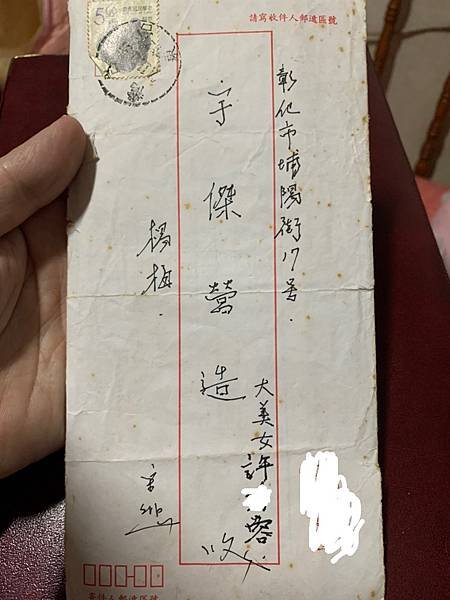 請寫收件人郵遞區號
彰化市埔陽街17号.
于傑營造
大美女許 容
收
楊梅.
寄件人郵遞區號
5